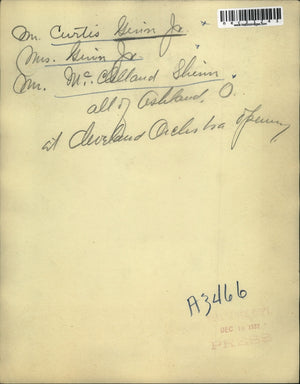 Mr. Curtis Ginn Jr.
Mrs. Ginn Jr
Mr. Mc Shinn
all of Ashland, O.
at Cleveland Orchestra opening
A3466
DEC
PRESS